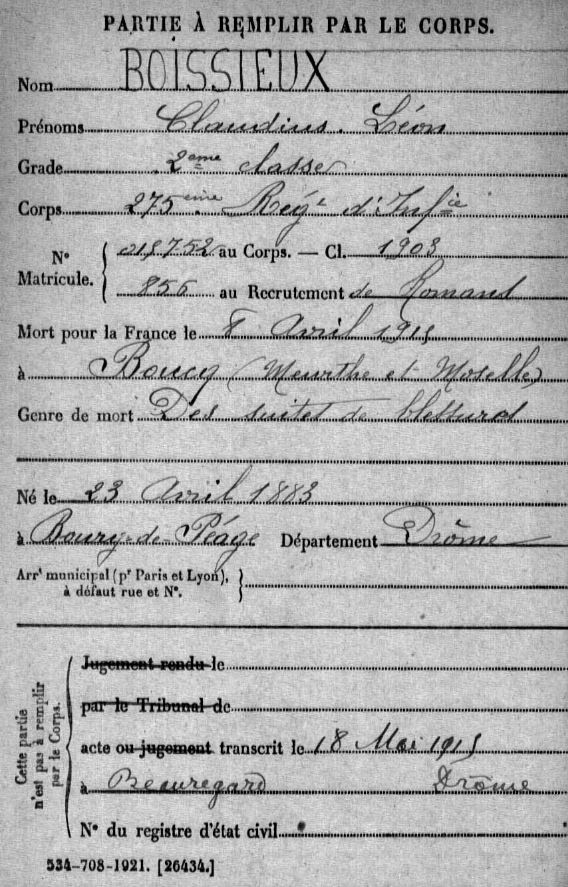 PARTIE À REMPLIR PAR LE CORPS.
Nom BOISSIEUX
Prénoms Claudius. Léon
Grade 2ème classe
Corps 275ème Régt d'Infie
No Matricule. 019752 au Corps. — Cl. 1903
856 au Recrutement de Romans
Mort pour la France le 8 Avril 1915
à Boucq (Meurthe et Moselle)
Genre de mort Des suites de blessures
Né le 23 Avril 1883
à Bourg-de-Péage Département Drôme
Arrt municipal (pr Paris et Lyon),
à défaut rue et No.
Cette partie n'est pas à remplir par le Corps.
Jugement rendu le
par le Tribunal de
acte ou jugement transcrit le 18 Mai 1915
à Beauregard Drôme
No du registre d'état civil
534-708-1921. [26434.]